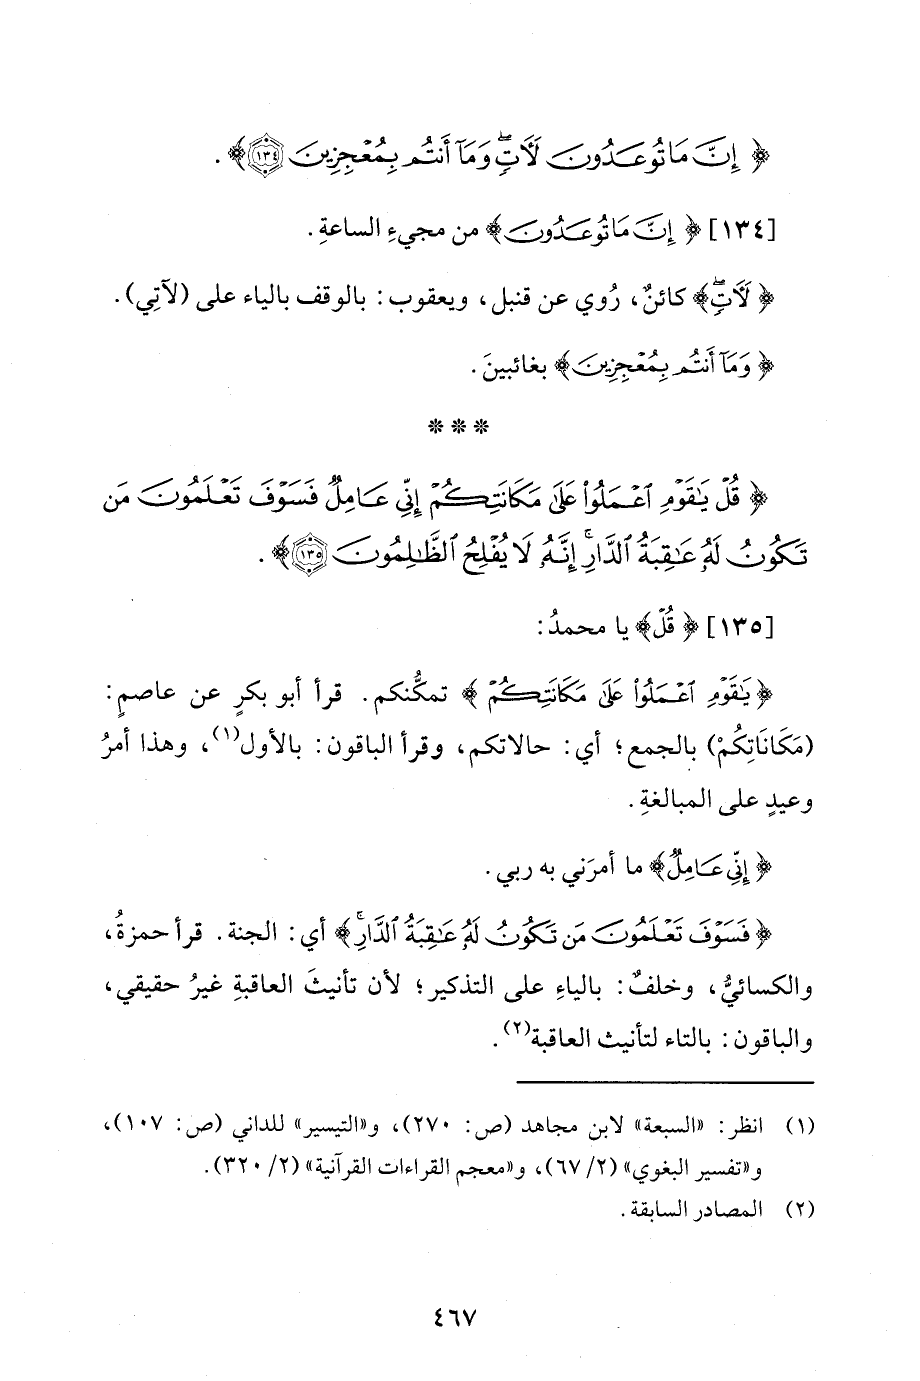 ﴿ إِنَّ مَا تُوعَدُونَ لَآتٍ ۖ وَمَا أَنتُم بِمُعْجِزِينَ ﴿١٣٤﴾ ﴾ .
[١٣٤] ﴿ إِنَّ مَا تُوعَدُونَ ﴾ من مجيءِ الساعةِ .
﴿ لَآتٍ ۖ ﴾ كائنٌ، رُوي عن قنبل، ويعقوب: بالوقف بالياء على (لآتِي).
﴿ وَمَا أَنتُم بِمُعْجِزِينَ ﴾ بغائبينَ .
* * *
﴿ قُلْ يَٰقَوْمِ ٱعْمَلُوا۟ عَلَىٰ مَكَانَتِكُمْ إِنِّي عَامِلٌ فَسَوْفَ تَعْلَمُونَ مَن
تَكُونُ لَهُۥ عَٰقِبَةُ ٱلدَّارِ ۚ إِنَّهُۥ لَا يُفْلِحُ ٱلظَّٰلِمُونَ ﴿١٣٥﴾ ﴾ .
[١٣٥] ﴿ قُلْ ﴾ يا محمدُ:
﴿ يَٰقَوْمِ ٱعْمَلُوا۟ عَلَىٰ مَكَانَتِكُمْ ﴾ تمكُّنكم. قرأ أبو بكرٍ عن عاصمٍ:
(مَكَانَاتِكُمْ) بالجمع؛ أي: حالاتكم، وقرأ الباقون: بالأول(١)، وهذا أمرُ
وعيدٍ على المبالغةِ .
﴿ إِنِّي عَامِلٌ ﴾ ما أمرَني به ربي .
﴿ فَسَوْفَ تَعْلَمُونَ مَن تَكُونُ لَهُۥ عَٰقِبَةُ ٱلدَّارِ ۚ ﴾ أي: الجنة. قرأ حمزةُ،
والكسائيُّ، وخلفٌ: بالياءِ على التذكير؛ لأن تأنيثَ العاقبةِ غيرُ حقيقي،
والباقون: بالتاء لتأنيث العاقبة(٢).
(١) انظر: «السبعة» لابن مجاهد (ص: ٢٧٠)، و«التيسير» للداني (ص: ١٠٧)،
و«تفسير البغوي» (٢/ ٦٧)، و«معجم القراءات القرآنية» (٢/ ٣٢٠).
(٢) المصادر السابقة .
٤٦٧